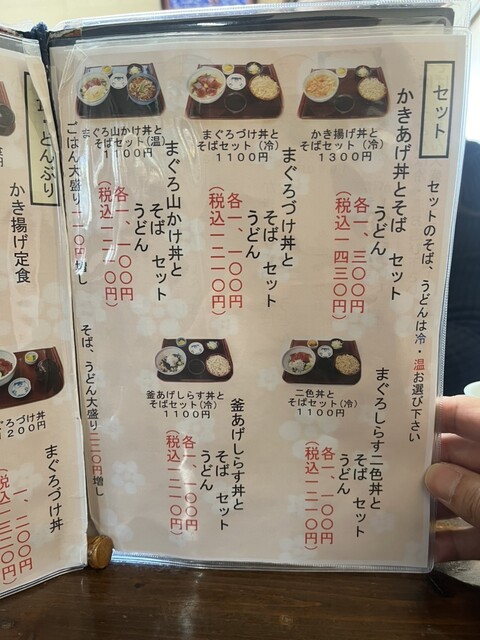 セット
セットのそば、うどんは冷・温お選び下さい
かき揚げ丼と
そばセット(冷)
1300円
かきあげ丼とそば セット
うどん
各一、三〇〇円
(税込一四三〇円)
まぐろづけ丼と
そばセット(冷)
1100円
まぐろづけ丼と
そば セット
うどん
各一、一〇〇円
(税込一二一〇円)
まぐろ山かけ丼と
そばセット(温)
1100円
まぐろ山かけ丼と
そば セット
うどん
各一、一〇〇円
(税込一二一〇円)
ごはん大盛り一一〇円増し
二色丼と
そばセット(冷)
1100円
まぐろしらす二色丼と
そば セット
うどん
各一、一〇〇円
(税込一二一〇円)
釜あげしらす丼と
そばセット(冷)
1100円
釜あげしらす丼と
そば セット
うどん
各一、一〇〇円
(税込一二一〇円)
そば、うどん大盛り二二〇円増し
どんぶり
かき揚げ定食
ぐろづけ丼
1200円
まぐろづけ丼
一、二〇〇円
(税込一三二〇円)